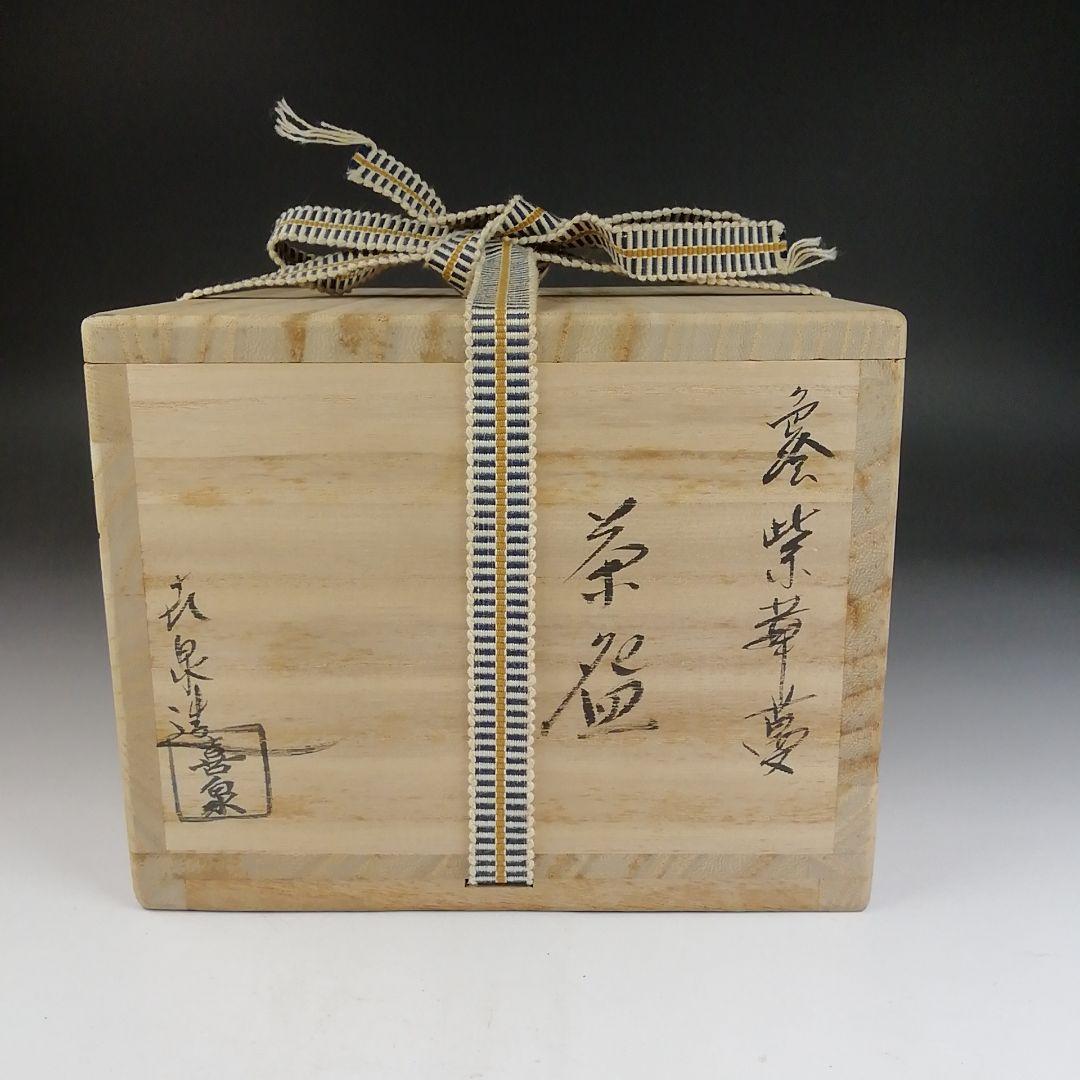 紫華夢
茶盌
喜泉造
喜泉